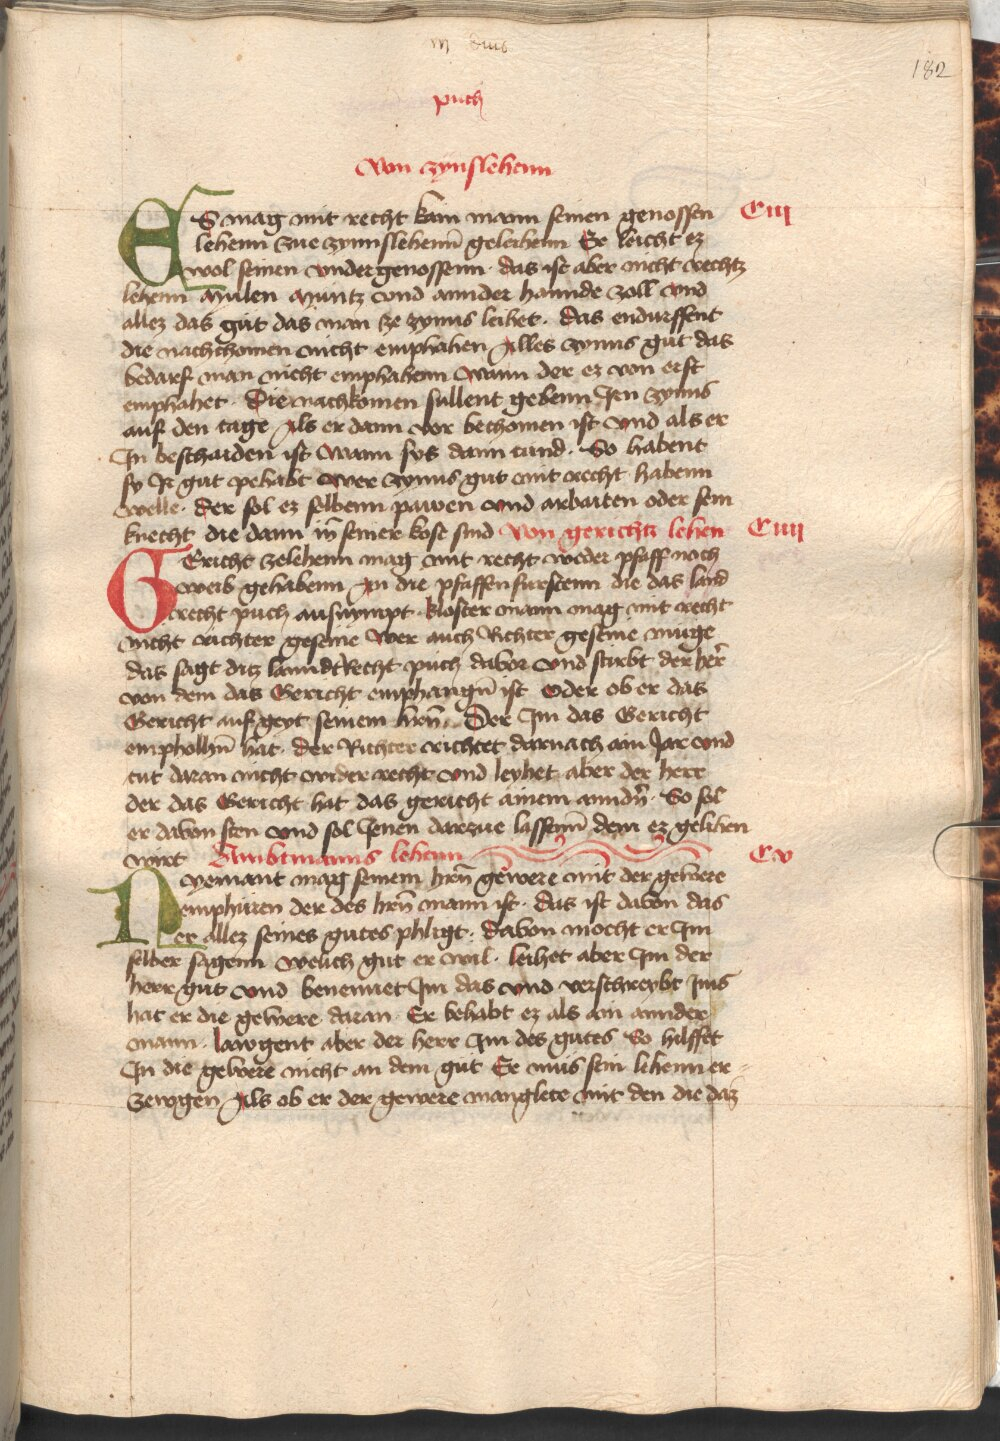 182
puch
Von zynslehenn
ES mag mit recht kain mann seinen genossen Ciij
lehenn zue zynnslehenn geleihenn Er leicht ez
wol seinen vndergenossenn · das ist aber nicht rechtz
lehenn Mulen Muntz vnd annder hannde zoll vnd
allez das gut das man ze zynns leihet · das endurffent
die nachchomen nicht emphahen Alles zynns gut das
bedarf man nicht emphahenn Wann der ez von erst
emphahet · Die nachkomen sullent gebenn Irn zynns
auf den tage Als er dann vor bechomen ist vnd als er
In beschaiden ist Wann sys dann tund · So habent
sy Ir gut behabt Wer zynns gut mit recht habenn
welle · der sol ez selbenn pawen vnd arbaiten oder sein
knecht die dann in seiner kost sind Von gerichtz lehen Ciiij
GEricht zelehenn mag mit recht weder pfaff noch
weib gehabenn An die pfaffen fursten die das land
recht puch ausnympt · kloster mann mag mit recht
nicht richter gesein Wer auch Richter gesein muge
das sagt ditz lanndt Recht puch dabor vnd stirbt der her
von dem das Gericht emphangn ist oder ob er das
Gericht auf geyt seinem hrn · Der Im das Gericht
empholhn hat · der Richter richtet darnach ain Jar vnd
tut daran nicht wider recht vnd leyhet aber der herr
der das Gericht hat das gericht ainem anndn · So sol
er dabon sten vnd sol Jenen darzue lassenn dem ez gelihen
wirt Ambtmanns lehenn Cv
Nyemant mag seinem hrn gewere mit der gewere
emphuren der des hrn mann ist · das ist dabon das
er allez seines gutes phligt · dabon mocht er Im
selber sagenn welich gut er wil · leihet aber Im der
herr gut vnd benennet Im das vnd verschreybt Ims
hat er die gewere daran · Er behabt ez als ain annder
mann · lawgent aber der herr Im des gutes So hilffet
In die gewere nicht an dem gut Er mus sein lehenn er
zewgen Als ob er der gewere manglete mit den die daz